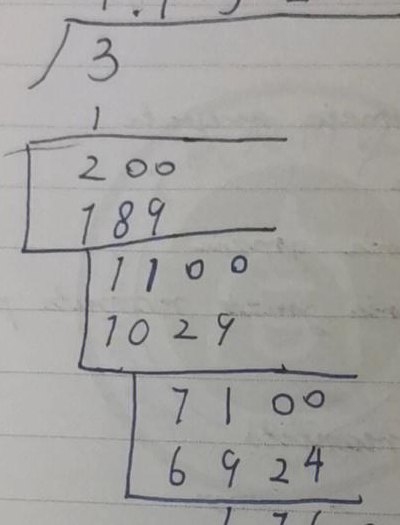 3
1
200
189
1100
1029
7100
6924